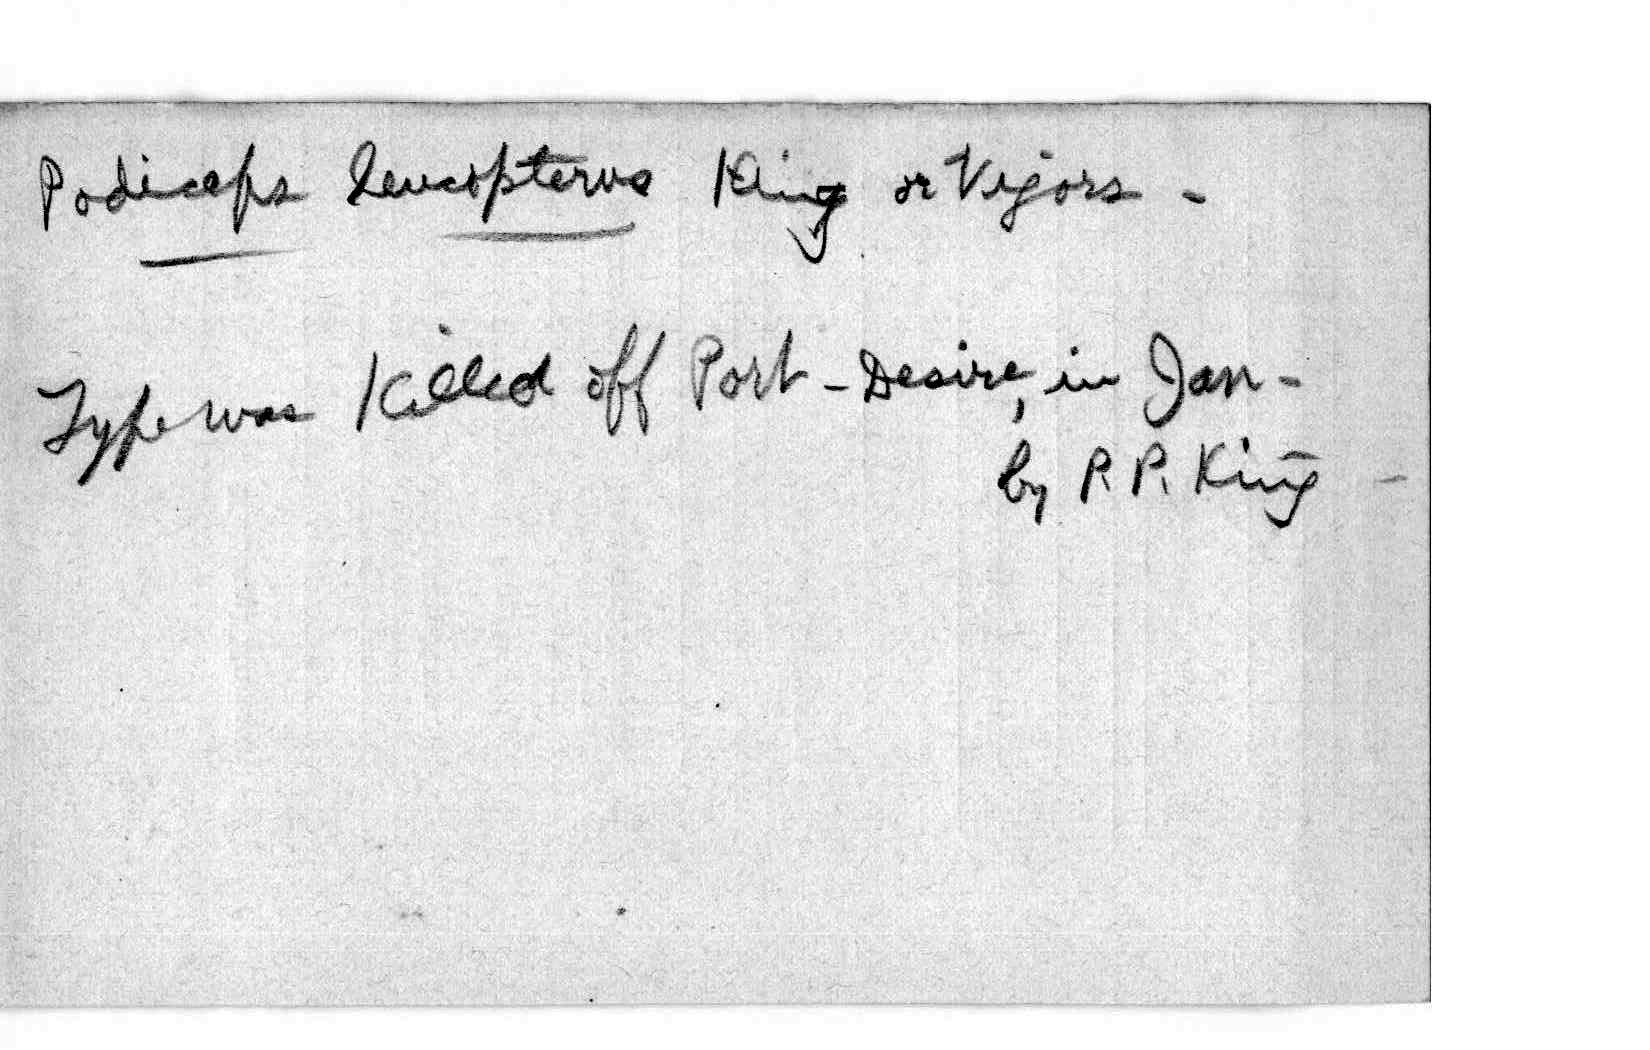 Podiceps leucopterus King or Vigors -
Type was Killed off Port-Desire, in Jan-
by P. P. King -